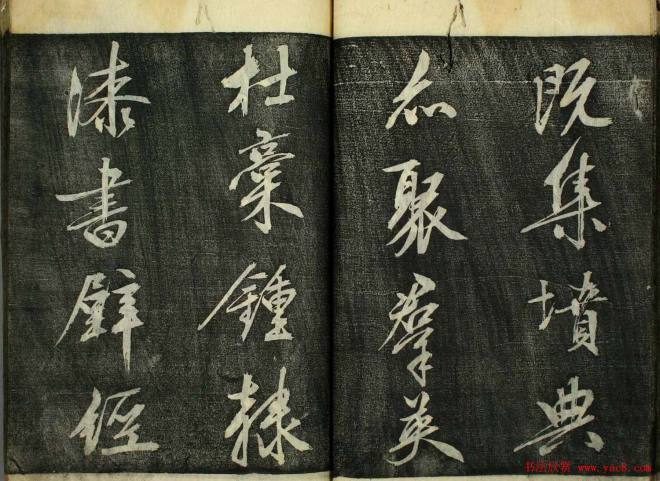 既集墳典
亦聚羣英
杜稾鍾隸
漆書壁經
书法欣赏 www.yac8.com